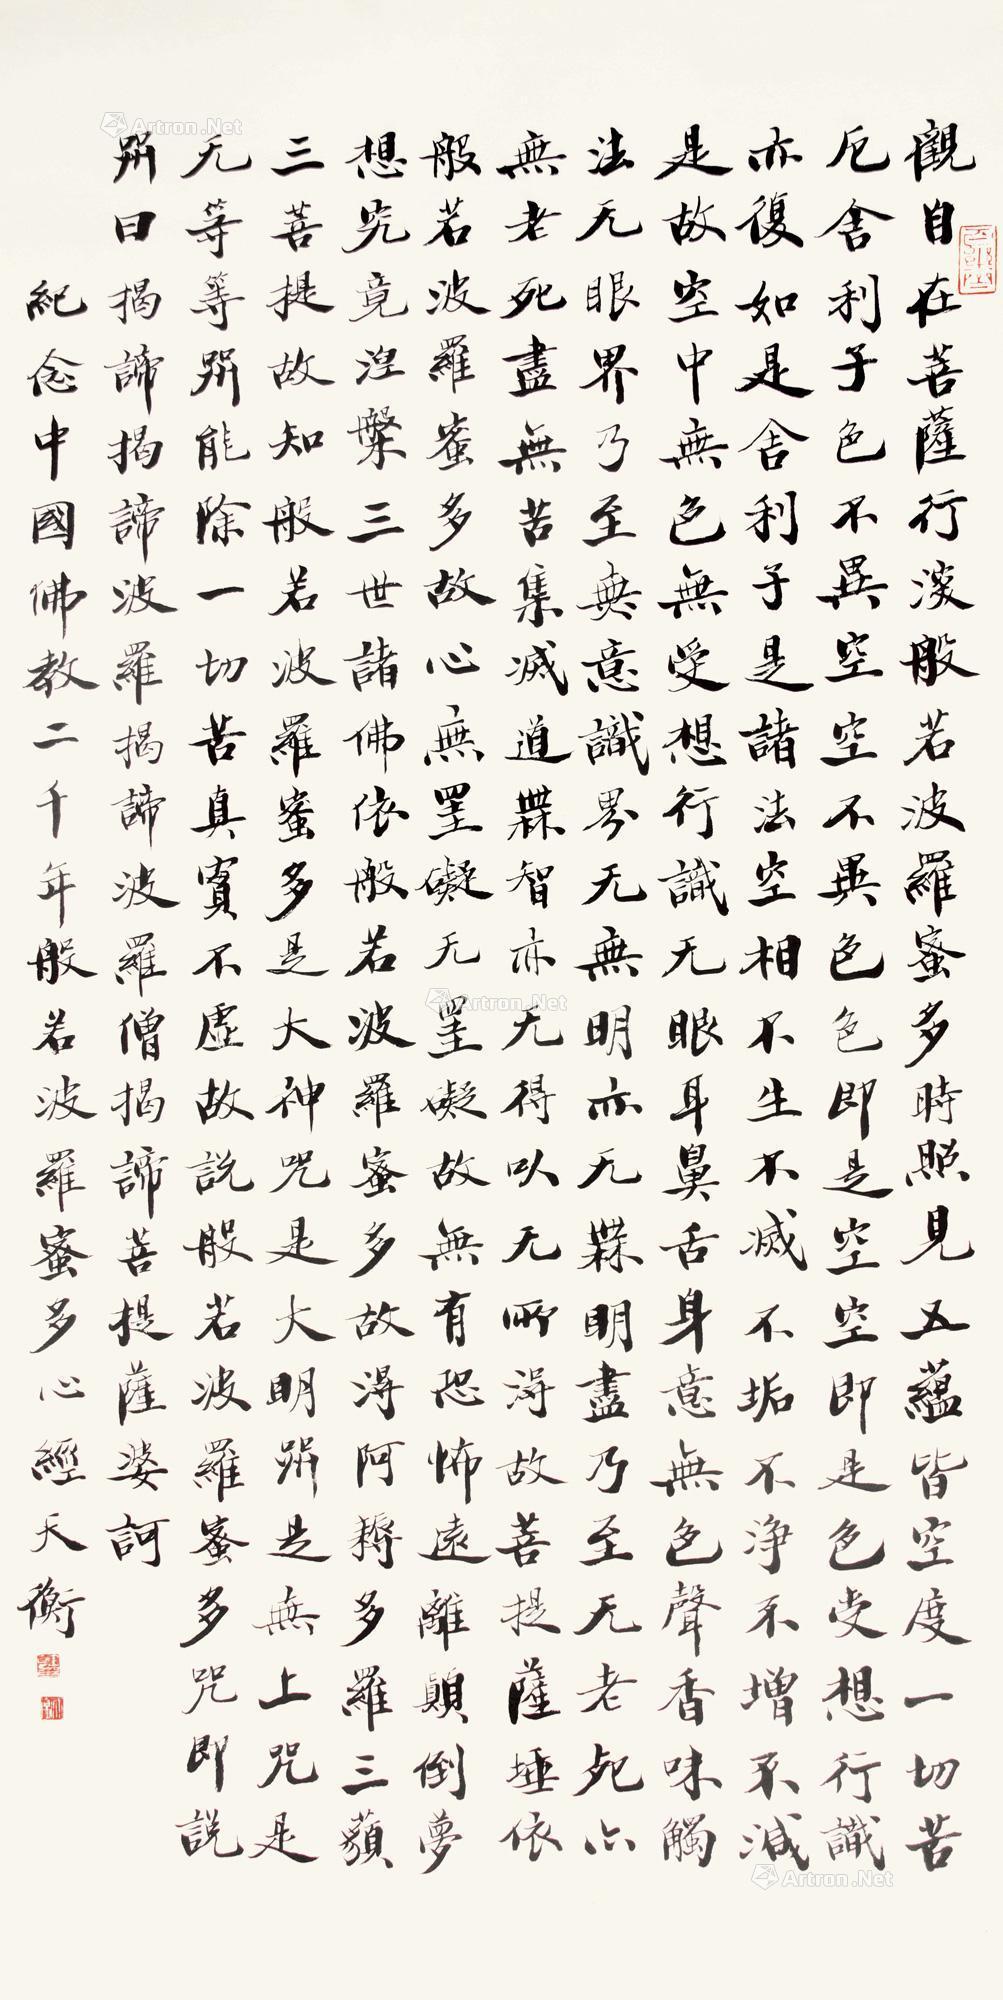 觀自在菩薩行深般若波羅蜜多時照見五蘊皆空度一切苦
厄舍利子色不異空空不異色色即是空空即是色受想行識
亦復如是舍利子是諸法空相不生不滅不垢不淨不增不減
是故空中無色無受想行識无眼耳鼻舌身意無色聲香味觸
法无眼界乃至無意識界无無明亦无無明盡乃至无老死亦
無老死盡無苦集滅道無智亦无得以无所得故菩提薩埵依
般若波羅蜜多故心無罣礙无罣礙故無有恐怖遠離顛倒夢
想究竟涅槃三世諸佛依般若波羅蜜多故得阿耨多羅三藐
三菩提故知般若波羅蜜多是大神咒是大明咒是無上咒是
无等等咒能除一切苦真實不虛故說般若波羅蜜多咒即說
咒曰揭諦揭諦波羅揭諦波羅僧揭諦菩提薩婆訶
紀念中國佛教二千年般若波羅蜜多心經天衡
Artron.Net
Artron.Net
Artron.Net